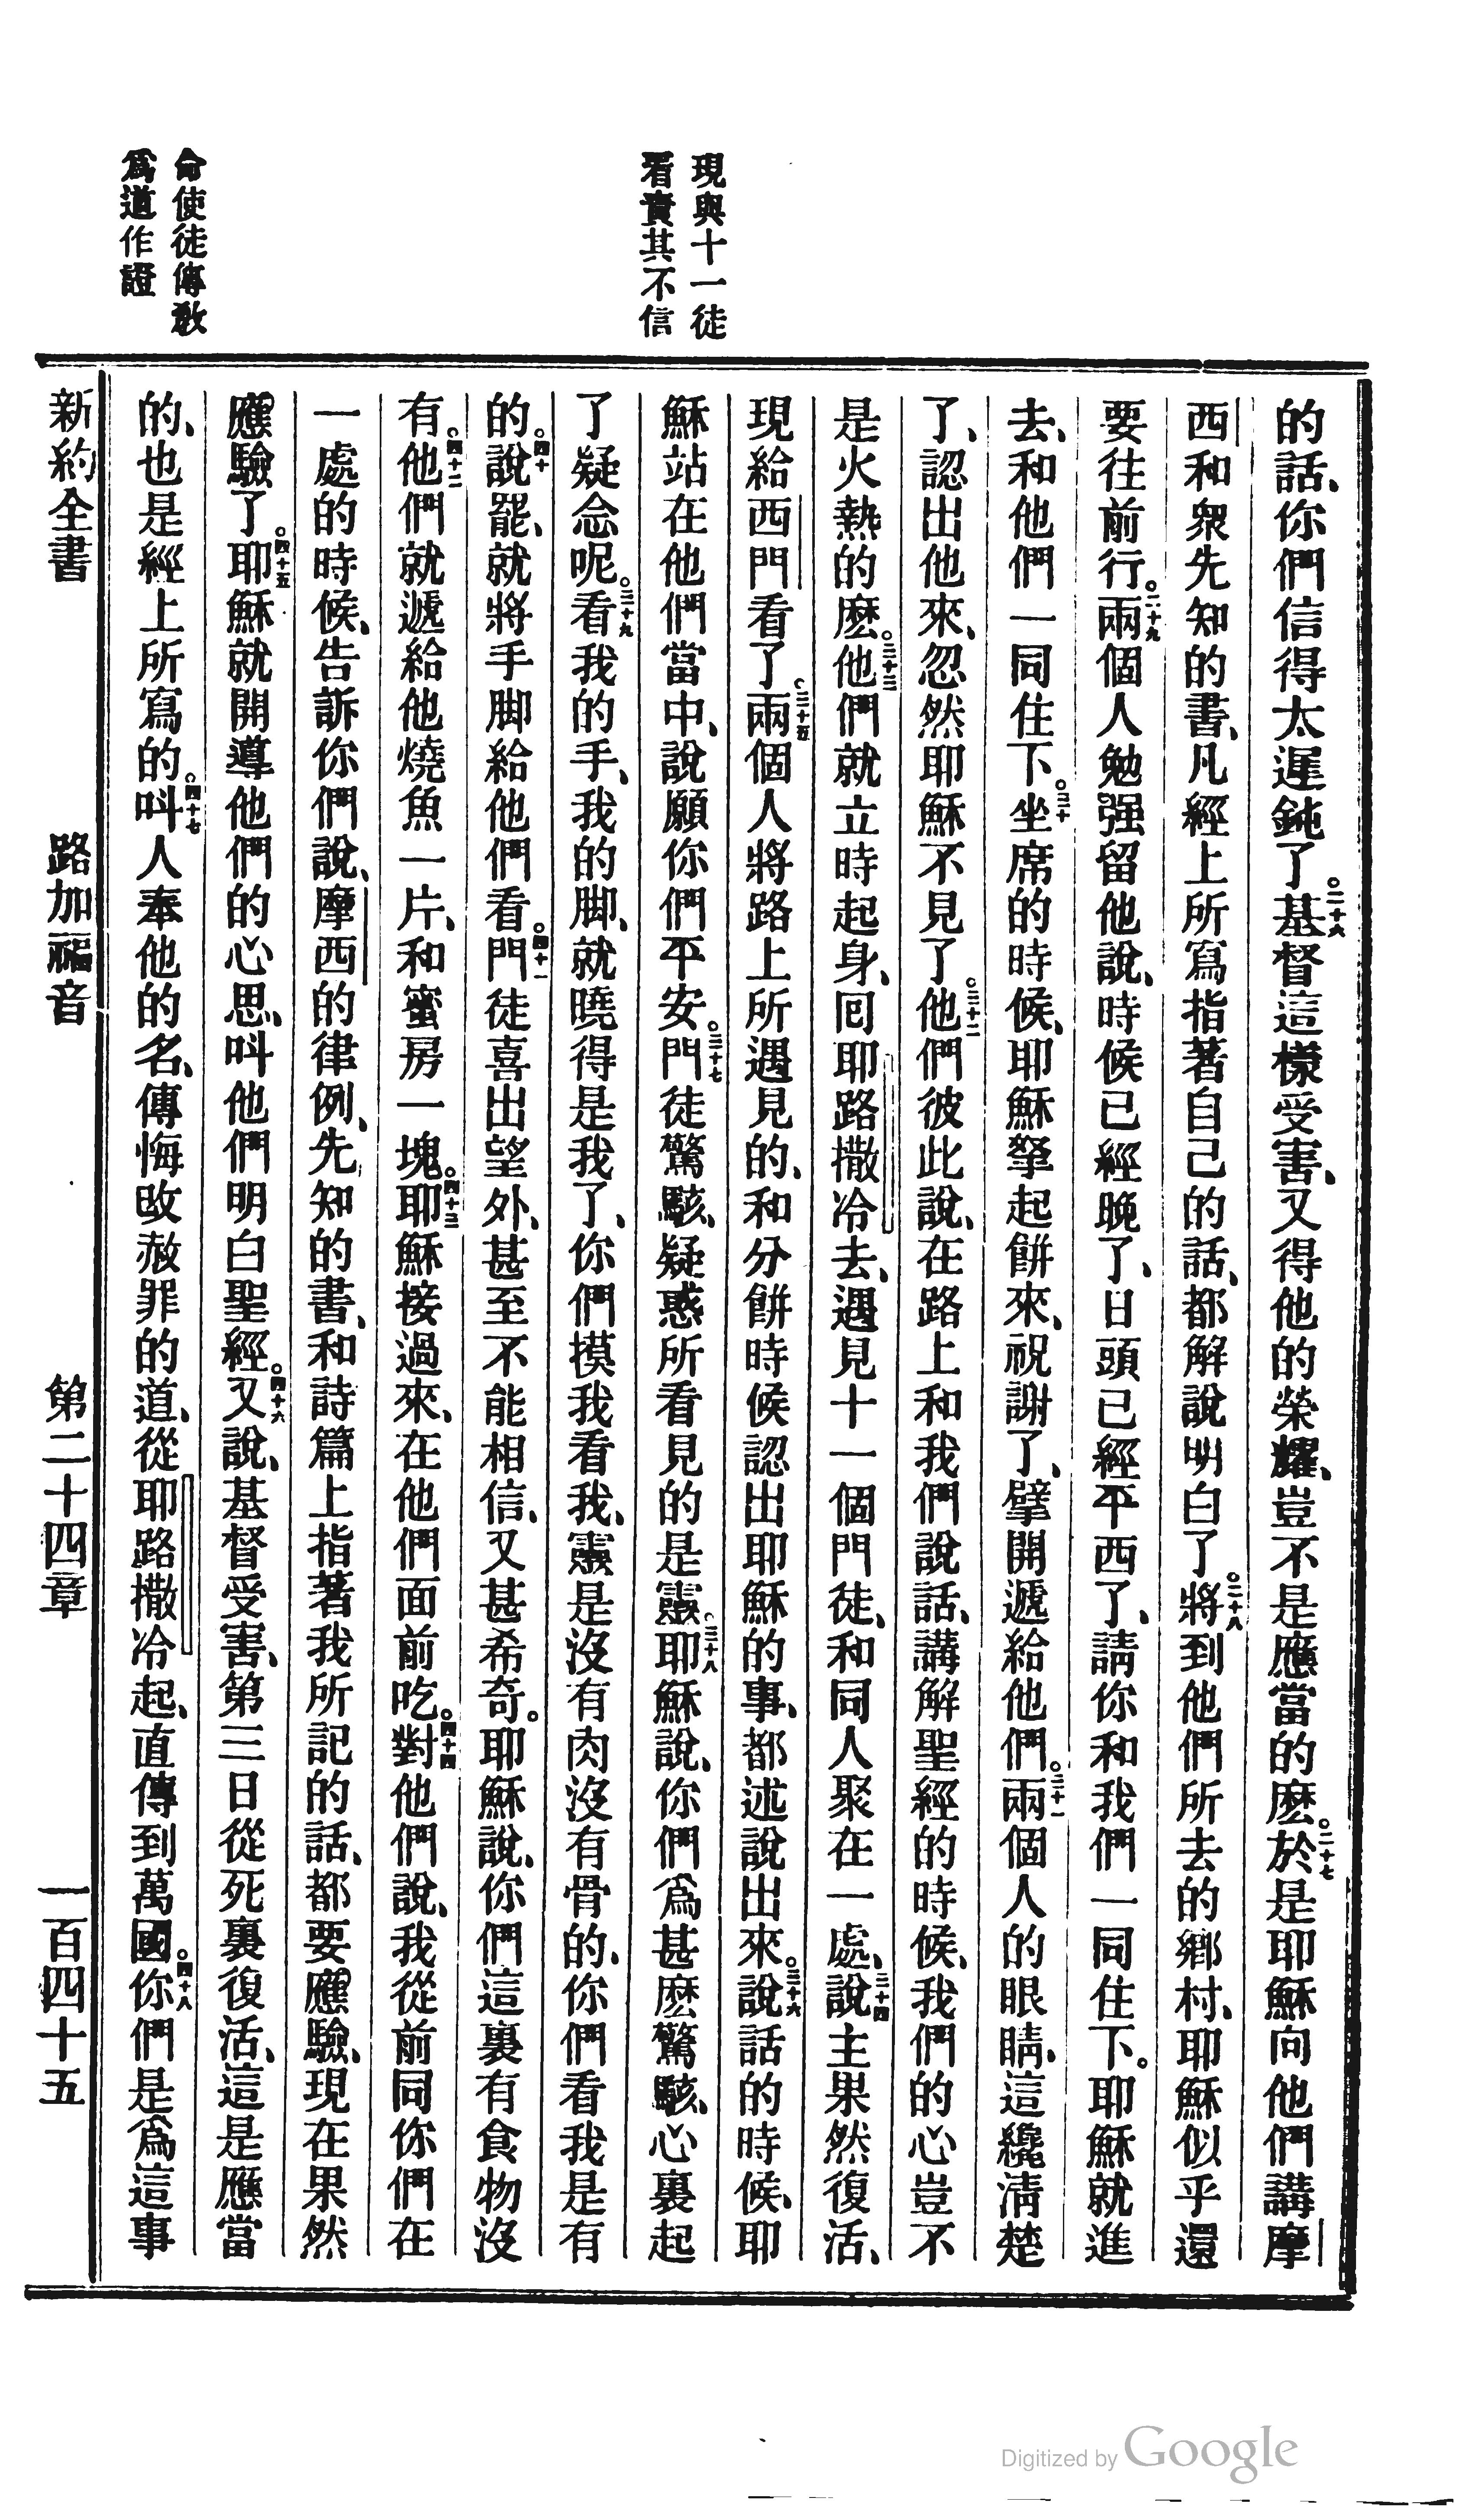 現與十一徒
看責其不信
命使徒傳教
爲道作證
的話、你們信得太遲鈍了○二十六基督這樣受害、又得他的榮耀、豈不是應當的麽○二十七於是耶穌向他們講摩
西和衆先知的書、凡經上所寫指著自己的話、都解說明白了○二十八將到他們所去的鄕村、耶穌似乎還
要往前行○二十九兩個人勉强留他說、時候已經晚了、日頭已經平西了、請你和我們一同住下。耶穌就進
去、和他們一同住下○三十坐席的時候、耶穌拏起餅來、祝謝了、擘開遞給他們○三十一兩個人的眼睛、這纔淸楚
了、認出他來、忽然耶穌不見了○三十二他們彼此說、在路上和我們說話、講解聖經的時候、我們的心豈不
是火熱的麽○三十三他們就立時起身、回耶路撒冷去、遇見十一個門徒、和同人聚在一處、三十四說主果然復活、
現給西門看了○三十五兩個人將路上所遇見的、和分餅時候認出耶穌的事、都述說出來○三十六說話的時候、耶
穌站在他們當中、說願你們平安○三十七門徒驚駭、疑惑所看見的是靈○三十八耶穌說、你們爲甚麽驚駭、心裏起
了疑念呢○三十九看我的手、我的脚、就曉得是我了、你們摸我看我、靈是沒有肉沒有骨的、你們看我是有
的○四十說罷、就將手脚給他們看○四十一門徒喜出望外、甚至不能相信、又甚希奇。耶穌說、你們這裏有食物沒
有○四十二他們就遞給他燒魚一片、和蜜房一塊○四十三耶穌接過來、在他們面前吃○四十四對他們說、我從前同你們在
一處的時候、告訴你們說、摩西的律例、先知的書、和詩篇上指著我所記的話、都要應驗、現在果然
應驗了○四十五耶穌就開導他們的心思、叫他們明白聖經○四十六又說、基督受害、第三日從死裏復活、這是應當
的、也是經上所寫的○四十七叫人奉他的名、傳悔改赦罪的道、從耶路撒冷起、直傳到萬國○四十八你們是爲這事
新約全書 路加福音 第二十四章 一百四十五
Digitized by Google